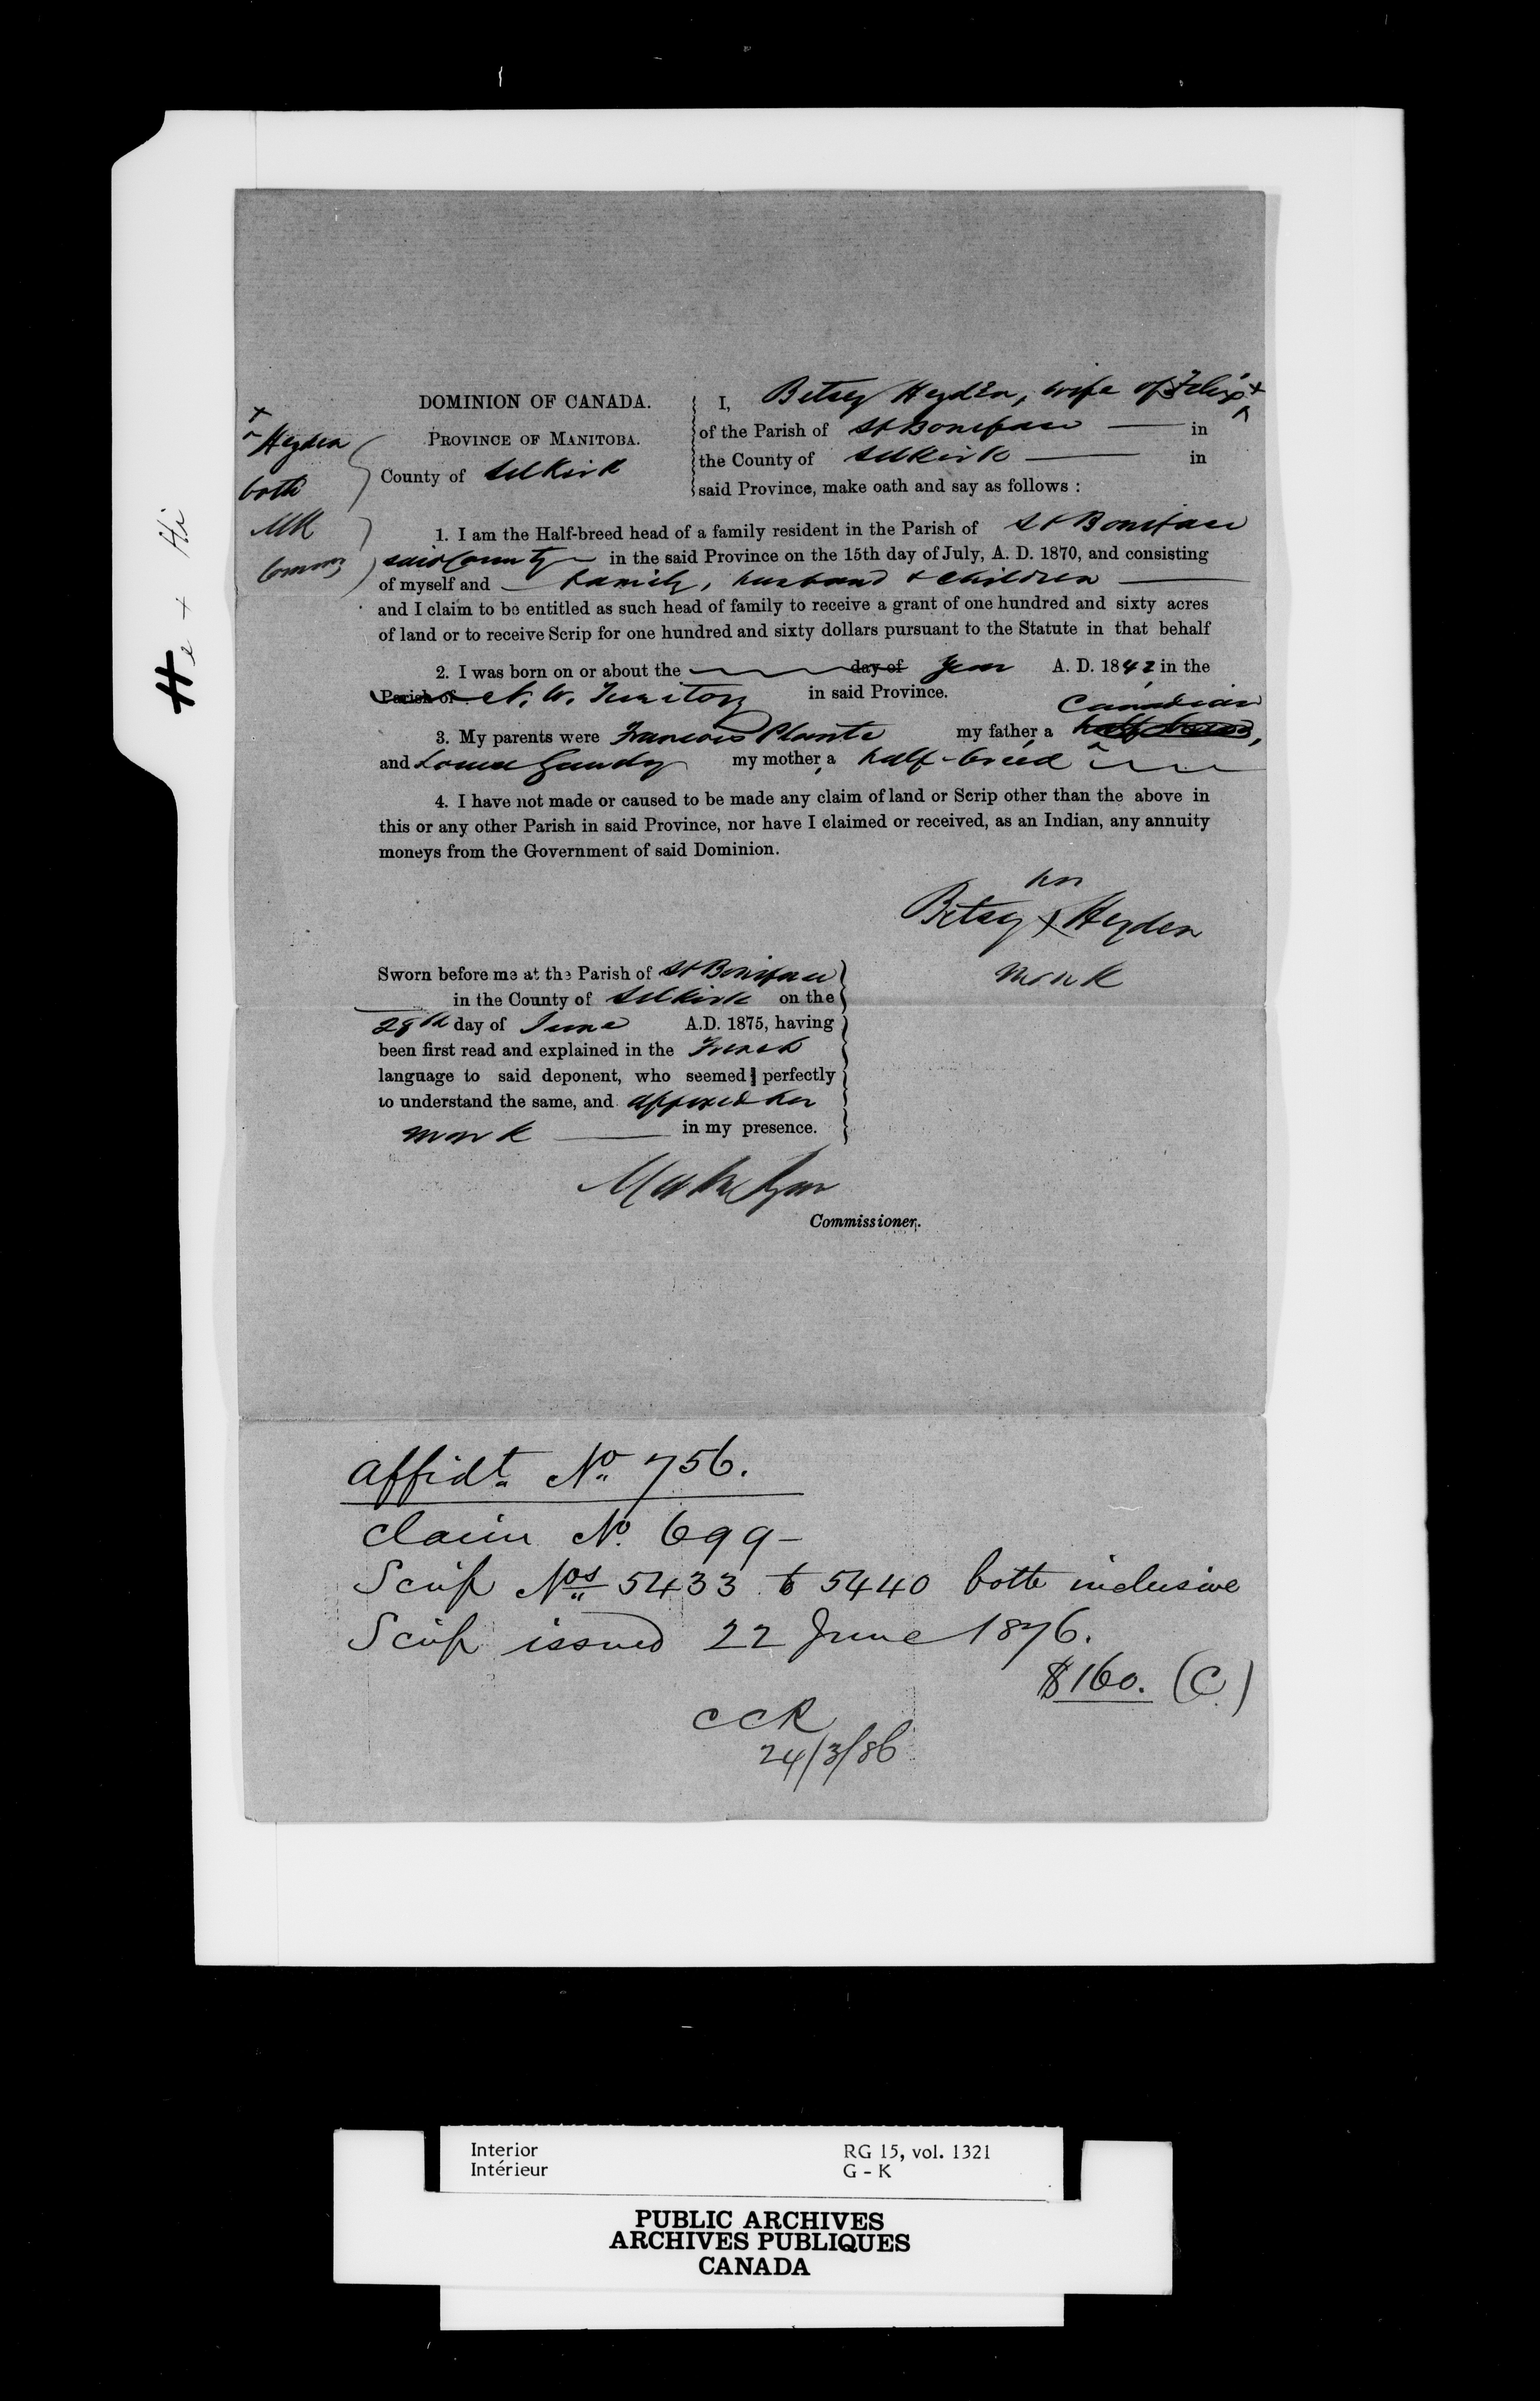 He + Hi
DOMINION OF CANADA.
PROVINCE OF MANITOBA.
County of Selkirk
+ Heyden
both
MR
Comm
I, Betsey Heyden, wife of Felix +
of the Parish of St Boniface — in
the County of Selkirk — in
said Province, make oath and say as follows :
1. I am the Half-breed head of a family resident in the Parish of St Boniface
said County in the said Province on the 15th day of July, A. D. 1870, and consisting
of myself and family, husband & children
and I claim to be entitled as such head of family to receive a grant of one hundred and sixty acres
of land or to receive Scrip for one hundred and sixty dollars pursuant to the Statute in that behalf
2. I was born on or about the day of year A. D. 1842 in the
Parish of N. W. Territory in said Province.
Canadian
3. My parents were Francois Plante my father, a half breed,
and Louise my mother, a half-breed
4. I have not made or caused to be made any claim of land or Scrip other than the above in
this or any other Parish in said Province, nor have I claimed or received, as an Indian, any annuity
moneys from the Government of said Dominion.
her
Betsey X Heyden
mark
Sworn before me at the Parish of St Boniface
in the County of Selkirk on the
28th day of June A.D. 1875, having
been first read and explained in the French
language to said deponent, who seemed perfectly
to understand the same, and affixed her
mark — in my presence.
Commissioner.
affidt. No. 756.
Claim No. 699 -
Scrip Nos 5433 to 5440 both inclusive
Scrip issued 22 June 1876.
$160. (C)
CCR
24/3/86
Interior
Intérieur
RG 15, vol. 1321
G - K
PUBLIC ARCHIVES
ARCHIVES PUBLIQUES
CANADA